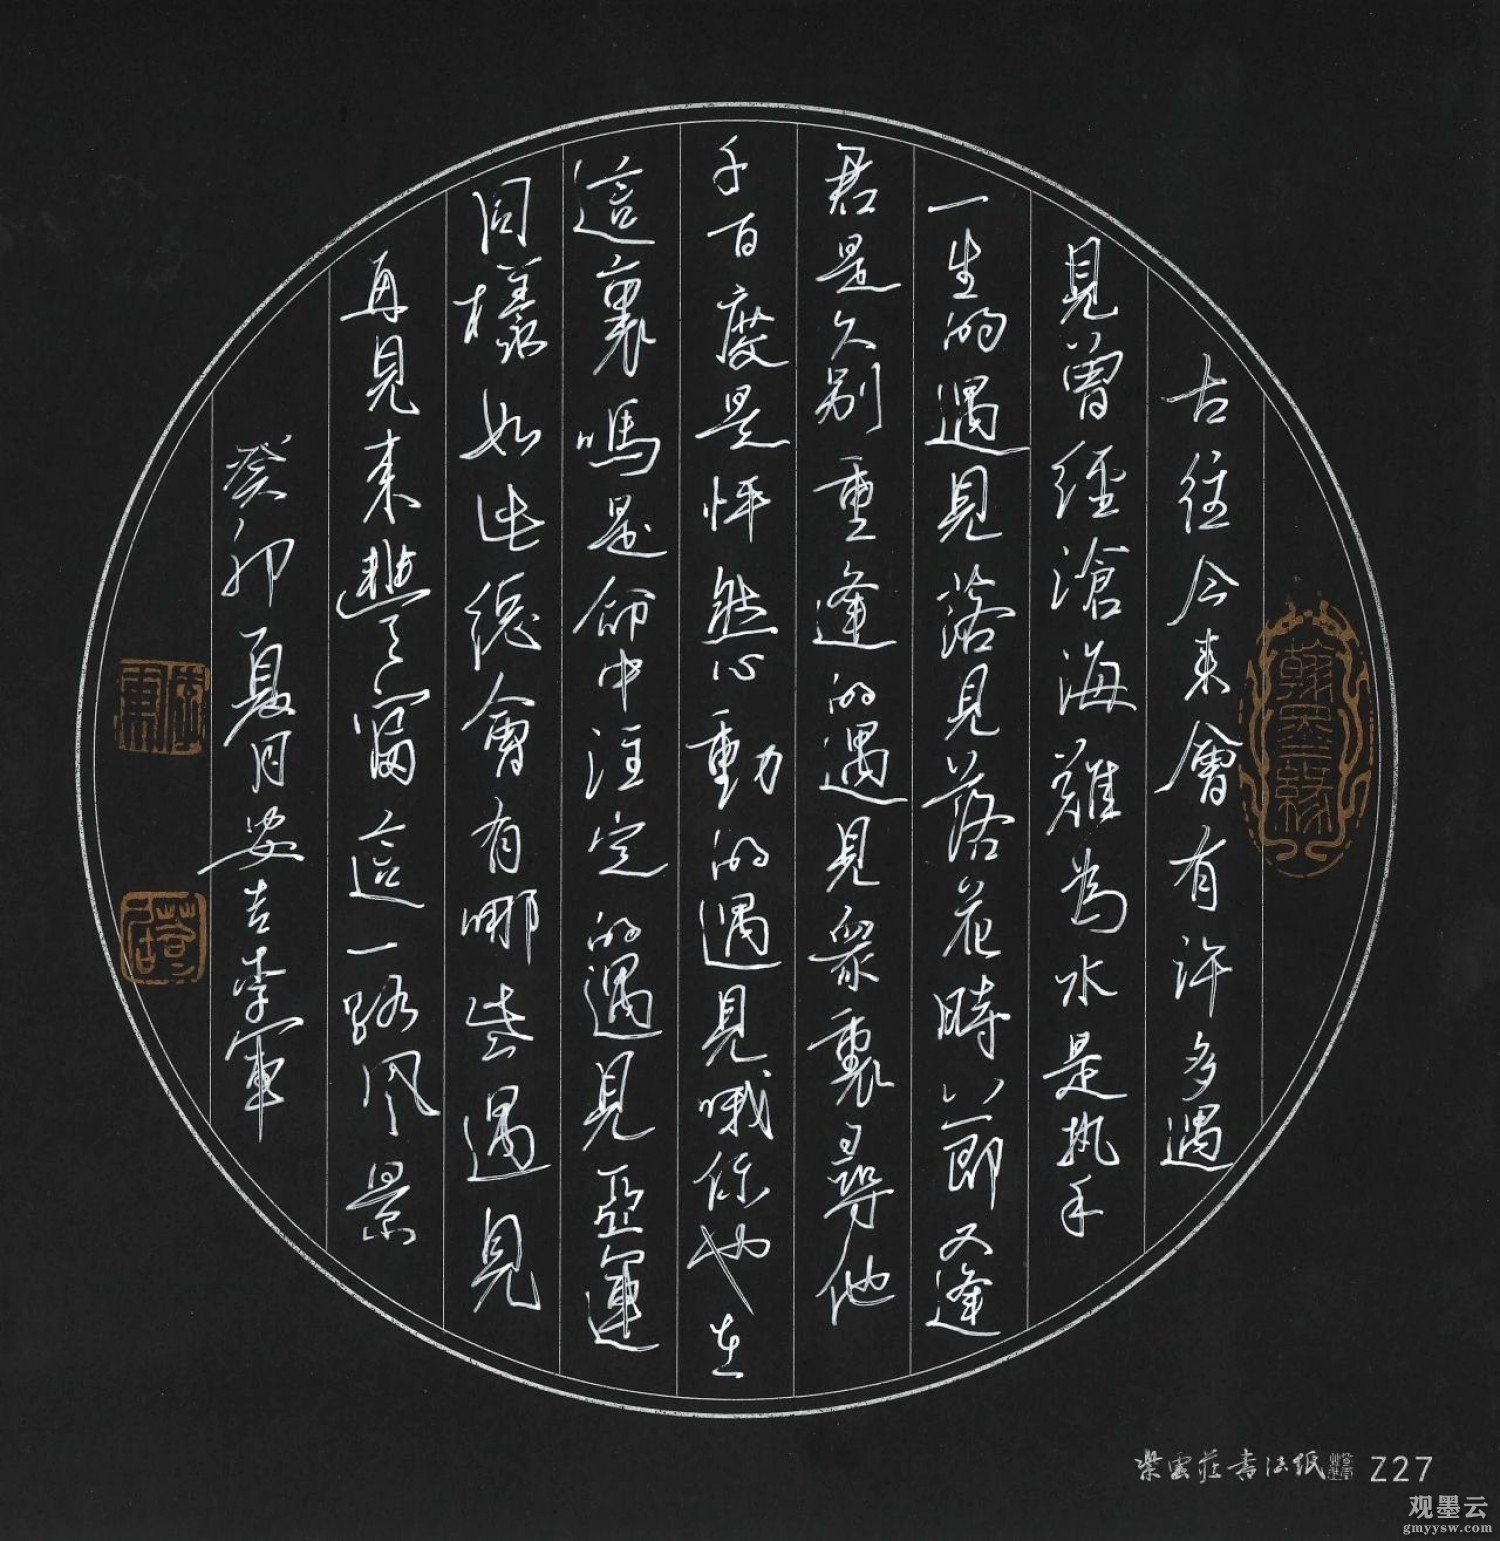 古往今來會有許多遇
見曾經滄海難為水是執手
一生的遇見落見落花時節又逢
君是久別重逢的遇見眾裏尋他
千百度是怦然心動的遇見哦你也在
這裏嗎是命中注定的遇見亞運
同樣如此總會有哪些遇見
再見來這一路风景
癸卯夏月安吉李軍
翰墨緣
李軍
紫雲莊書法紙 Z27
观墨云
gmyysw.com